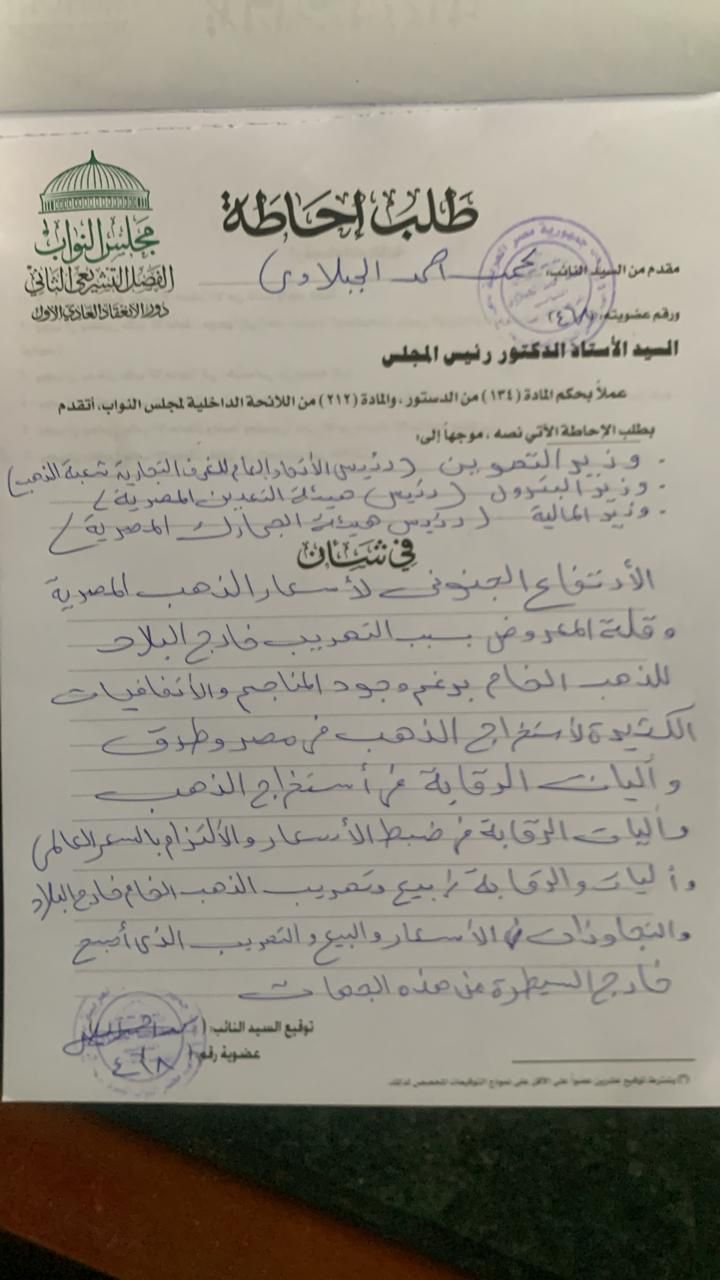 مجلس النواب
الفصل التشريعي الثاني
دور الانعقاد العادي الأول
طلب إحاطة
مقدم من السيد النائب: احمد الجبلاوى
ورقم عضويته: ٤٠٨
السيد الأستاذ الدكتور رئيس المجلس
عملاً بحكم المادة (١٣٤) من الدستور، والمادة (٢١٢) من اللائحة الداخلية لمجلس النواب، أتقدم
بطلب الإحاطة الآتي نصه، موجهاً إلى:
- وزير التموين (رئيس الأتحاد العام للغرف التجارية شعبة الذهب)
- وزير البترول (رئيس هيئة التعدين المصرية)
- وزير المالية (رئيس هيئة الجمارك المصرية)
في شأن
الأرتفاع الجنونى لأسعار الذهب المصرية
وقلة المعروض بسبب التهريب خارج البلاد
للذهب الخام برغم وجود المناجم والأتفاقيات
الكثيرة لأستخراج الذهب فى مصر وطرق
وأليات الرقابة فى أستخراج الذهب
وأليات الرقابة فى ضبط الأسعار والألتزام بالسعر العالمى
وأليات والرقابة بيع وتهريب الذهب الخام خارج البلاد
والتجاوزات فى الأسعار والبيع والتهريب الذى أصبح
خارج السيطرة من هذه الجهات
توقيع السيد النائب:
عضوية رقم: ٤٠٨
(*) يشترط توقيع عشرين عضواً على الأقل على نموذج التوقيعات المخصص لذلك.